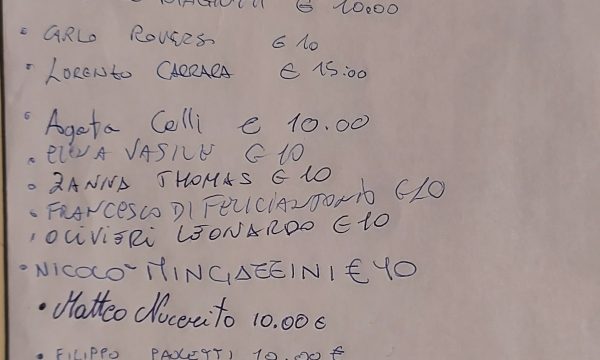 € 10.00
• CARLO ROVERSI € 10
• LORENZO CARRARA € 15.00
• Agata Celli € 10.00
• ELENA VASILE € 10
• ZANNA THOMAS € 10
• FRANCESCO DI FELICIANTONIO €10
• OLIVIERI LEONARDO €10
• NICOLÒ MINGAZZINI €
• Matteo Nucerito 10.00 €
• FILIPPO PAOLETTI 10.00 €